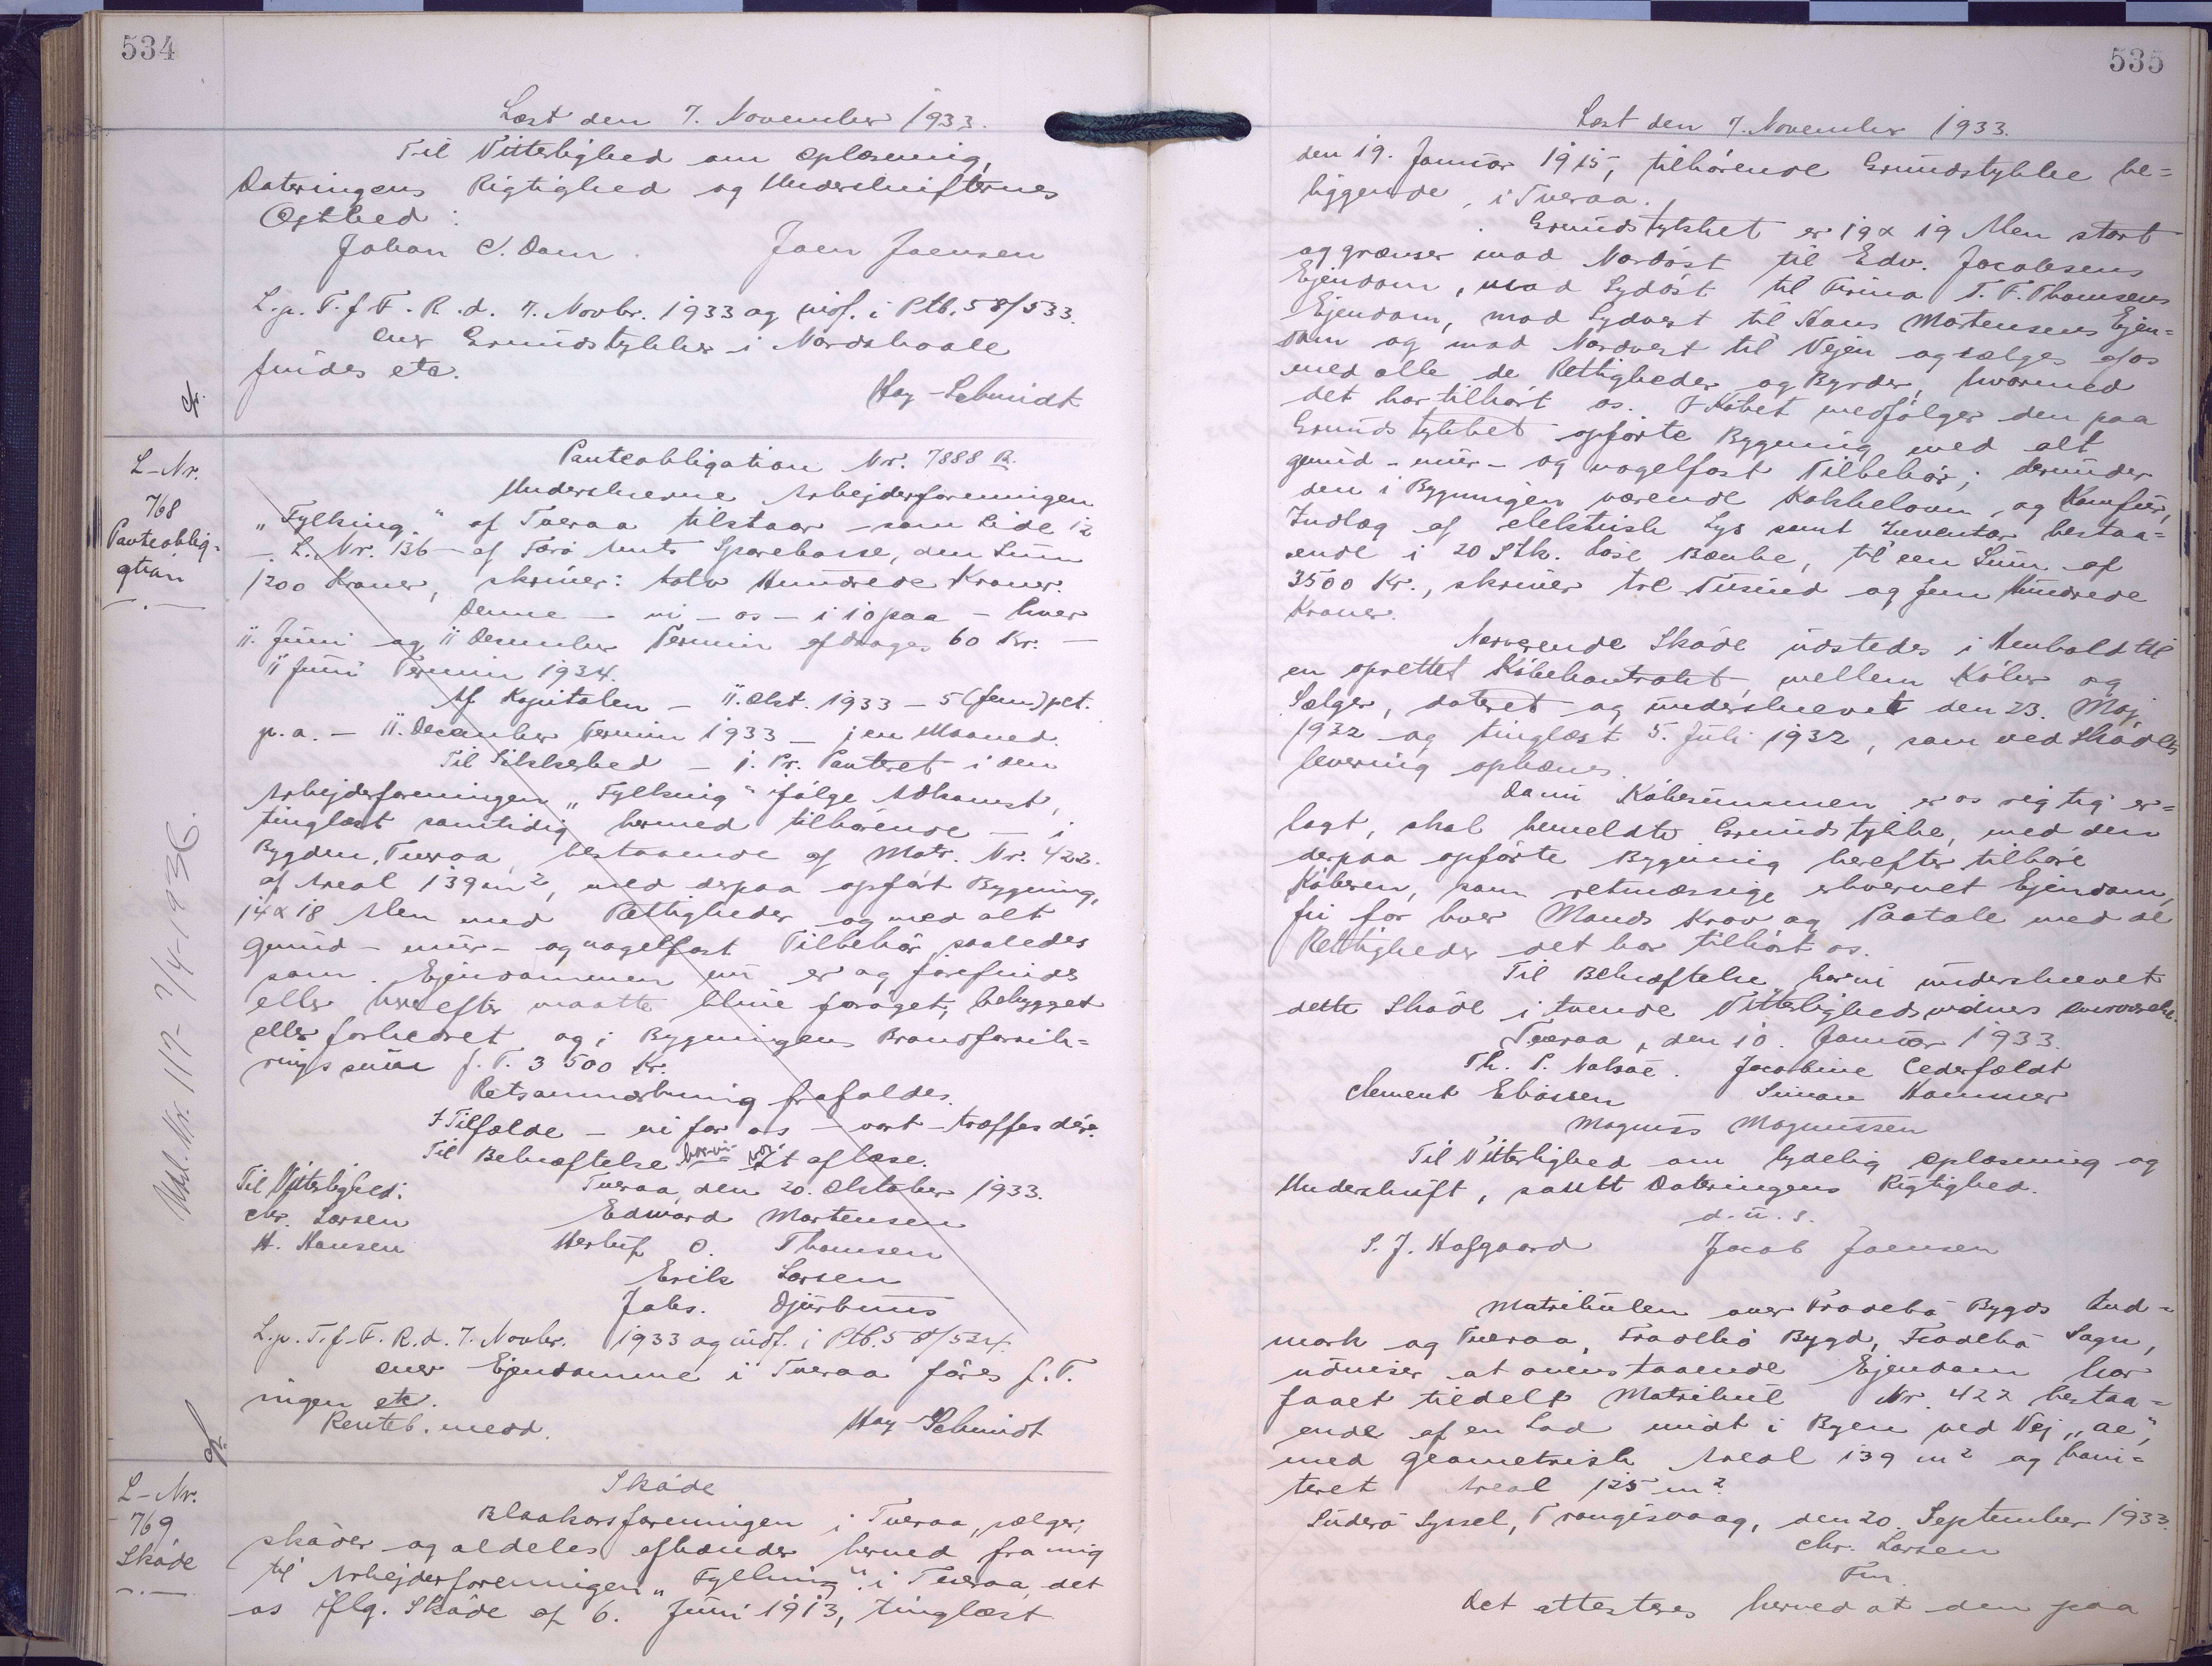 534
Læst den 7. November 1933.
Til Vitterlighed om Oplæsning,
Dateringens Rigtighed og Underskrifternes
Ægthed:
Johan C. Dam. Joen Joensen
L. p. T. f. F. R. d. 7. Novbr. 1933 og indf. i Ptb. 58/533.
Over Grundstykker i Nordskaale
findes etc.
Hay-Schmidt
cfr.
L-Nr.
768
Panteoblig-
gtion
Panteobligation Nr. 7888 B.
Underskrevne Arbejderforeningen
"Fylking" af Tveraa tilstaar - som Side 12
- L. Nr. 136 - af Færø Amts Sparekasse, den Sum
1200 Kroner, skriver: tolv Hundrede Kroner.
Denne - vi - os - i 10 paa - hver
11. Juni og 11 December Termin afdrages 60 Kr. -
11 Juni Termin 1934.
Af Kapitalen - 11. Okt. 1933 - 5 (fem) pct.
p. a. - 11. December Termin 1933 - jen Maaned.
Til Sikkerhed - 1. Pr. Panteret i den
Arbejderforeningen "Fylking" ifølge Adkomst,
tinglæst samtidig hermed tilhørende - i
Bygden Tveraa, bestaaende af Matr. Nr. 422.
af Areal 139 m², med derpaa opført Bygning,
14 x 18 Alen med Rettigheder og med alt
grund- mur- og nagelfast Tilbehør, saaledes
som Ejendommen nu er og forefindes
eller herefter maatte blive forøget, bebygget
eller forbedret og i Bygningens Brandforsik-
ringssum f. T. 3500 Kr.
Retsanmærkning frafaldes.
I Tilfælde - vi for os - vort - træffes dér.
Til Bekræftelse har vi aflæse.
Tveraa, den 20. Oktober 1933.
Til Vitterlighed:
Chr. Larsen
H. Hansen
Edward Mortensen
Herluf O. Thomsen
Erik Larsen
Johs. Djurhuus
L. p. T. f. F. R. d. 7. Novbr. 1933 og indf. i Ptb. 58/534.
over Ejendomme i Tveraa føres f. T.
ingen etc.
Renteb. medd. Hay-Schmidt
cfr.
Udsl. Nr. 117- 7/4-1936.
L-Nr.
769
Skøde
Skøde
Blaakorsforeningen i Tveraa, sælger,
skøder og aldeles afhænder herved fra mig
til Arbejderforeningen "Fylking" i Tveraa, det
os iflg. Skøde af 6. Juni 1913, tinglæst
535
Læst den 7. November 1933.
den 19. Januar 1915, tilhørende Grundstykke be=
liggende, i Tveraa.
Grundstykket er 19 x 19 Alen stort
og grænser mod Nordøst til Edv. Jacobsens
Ejendom, mod Sydøst til Firma T. F. Thomsens
Ejendom, mod Sydvest til Hans Mortensens Ejen=
dom og mod Nordvest til Vejen og sælges af os
med alle de Rettigheder og Byrder, hvormed
det har tilhørt os. I Købet medfølger den paa
Grundstykket opførte Bygning med alt
grund- mur- og nagelfast Tilbehør; derunder
den i Bygningen værende Kakkelovn, og Komfur,
Indlæg af elektrisk Lys samt Inventar bestaa=
ende i 20 Stk. løse Bænke, til een Sum af
3500 Kr., skriver tre Tusind og fem Hundrede
Kroner.
Nærværende Skøde udstedes i Henhold til
en oprettet Købekontrakt, mellem Køber og
Sælger, dateret og underskrevet den 23. Maj
1932 og tinglæst 5. Juli 1932, som ved Skødets
levering ophæves.
Da nu Købesummen er os rigtig er=
lagt, skal bemeldte Grundstykke, med den
derpaa opførte Bygning herefter tilhøre
Køberen, som retmæssige erhvervet Ejendom,
fri for hver Mands Krav og Paatale med de
Rettigheder det har tilhørt os.
Til Bekræftelse har vi underskrevet
dette Skøde i tvende Vitterlighedsvidners Overværelse.
Tveraa, den 10. Januar 1933.
Th. P. Nolsøe. Jacobine Cederfældt
Clement Ebassen Simon Hammer
Magnuss Magnussen
Til Vitterlighed om lydelig Oplæsning og
Underskrift, samt Dateringens Rigtighed.
d. u. s.
S. J. Hofgaard Jacob Joensen
Matrikulen over Frodebø Bygds Ind=
mark og Tveraa, Frodebø Bygd, Frodebø Sogn,
udviser at ovenstaaende Ejendom har
faaet tildelt Matrikul Nr. 422 bestaa=
ende af en Lod midt i Byen ved Vej "ae",
med geometrisk Areal 139 m² og boni=
teret Areal 125 m².
Suderø Syssel, Trangisvaag, den 20. September 1933.
Chr. Larsen
Fm.
Det attesteres herved at den paa